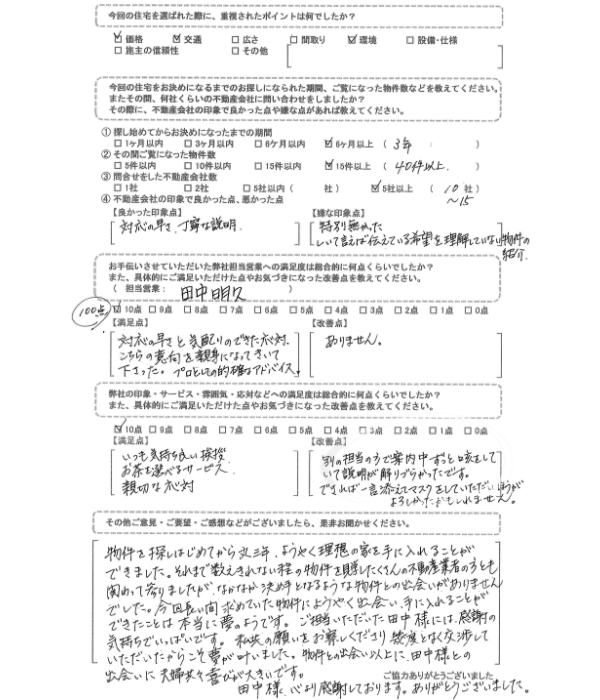 今回の住宅を選ばれた際に、重視されたポイントは何でしたか？
☑ 価格 ☑ 交通 □ 広さ □ 間取り ☑ 環境 □ 設備・仕様
□ 施主の信頼性 □ その他
今回の住宅をお決めになるまでのお探しになられた期間、ご覧になった物件数などを教えてください。
またその間、何社くらいの不動産会社に問い合わせをしましたか？
その際に、不動産会社の印象で良かった点や嫌な点があれば教えてください。
① 探し始めてからお決めになったまでの期間
□ 1ヶ月以内 □ 3ヶ月以内 □ 6ヶ月以内 ☑ 6ヶ月以上 ( 3年 )
② その間ご覧になった物件数
□ 5件以内 □ 10件以内 □ 15件以内 ☑ 15件以上 ( 40件以上. )
③ 問合せをした不動産会社数
□ 1社 □ 2社 □ 5社以内 ( 社 ) ☑ 5社以上 ( 10 社 )
〜15
④ 不動産会社の印象で良かった点、悪かった点
【良かった印象点】 【嫌な印象点】
対応の早さ、丁寧な説明. 特別無かった
しいて言えば伝えている希望を理解していない物件の
紹介.
お手伝いさせていただいた弊社担当営業への満足度は総合的に何点くらいでしたか？
また、具体的にご満足いただけた点やお気づきになった改善点を教えてください。
( 担当営業： 田中 明久 )
100点 ☑ 10点 □ 9点 □ 8点 □ 7点 □ 6点 □ 5点 □ 4点 □ 3点 □ 2点 □ 1点 □ 0点
【満足点】 【改善点】
対応の早さと気配りのできた応対. ありません。
こちらの意向を親身になってきいて
下さった。プロとしての的確なアドバイス.
弊社の印象・サービス・雰囲気・応対などへの満足度は総合的に何点くらいでしたか？
また、具体的にご満足いただけた点やお気づきになった改善点を教えてください。
☑ 10点 □ 9点 □ 8点 □ 7点 □ 6点 □ 5点 □ 4点 □ 3点 □ 2点 □ 1点 □ 0点
【満足点】 【改善点】
いつも気持ち良い挨拶 別の担当の方で案内中ずっと咳をして
お茶を選べるサービス. いて説明が解りづらかったです。
親切な応対 できれば一言添えてマスクをしていただいたほうが
よろしかったかもしれません。
その他ご意見・ご要望・ご感想などがございましたら、是非お聞かせください。
物件を探しはじめてから丸三年、ようやく理想の家を手に入れることが
できました。それまで数えきれない程の物件を見学したくさんの不動産業者の方とも
関わって参りましたが、なかなか決め手となるような物件との出会いがありません
でした。今回長い間求めていた物件にようやく出会い、手に入れることが
できたことは本当に夢のようです。ご担当いただいた田中様には、感謝の
気持ちでいっぱいです。私共の願いをお察しくださり幾度となく交渉して
いただいたからこそ夢が叶いました。物件との出会い以上に、田中様との
出会いに夫婦共々喜びが大きいです。
ご協力ありがとうございました
田中様、心より感謝しております。ありがとうございました。